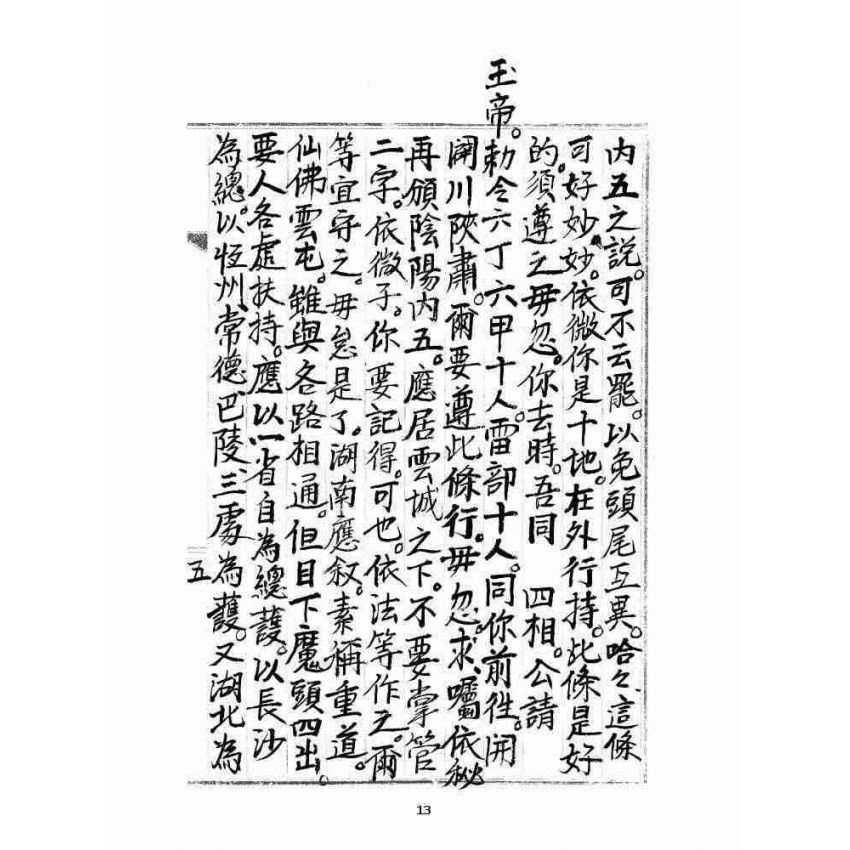 內五之說。可不云罷。以免頭尾互異。哈々、這條
可好妙妙。依微你是十地。在外行持。此條是好
的。須遵之毋忽。你去時。吾同　四相。公請
玉帝。勅令六丁六甲十人。雷部十人。同你前徃。開
開川陝肅。爾要遵此條行。毋忽。求、囑依秘
再頒陰陽內五。應居雲城之下。不要掌管
二字。依微子。你要記得。可也。依法等作之。爾
等宜守之。毋怠是了。湖南應叙。素稱重道。
仙佛雲屯。雖與各路相通。但目下魔頭四出。
要人各處扶持。應以一省自為總護。以長沙
為總。以恆州、常德、巴陵、三處為護。又湖北為
五
13